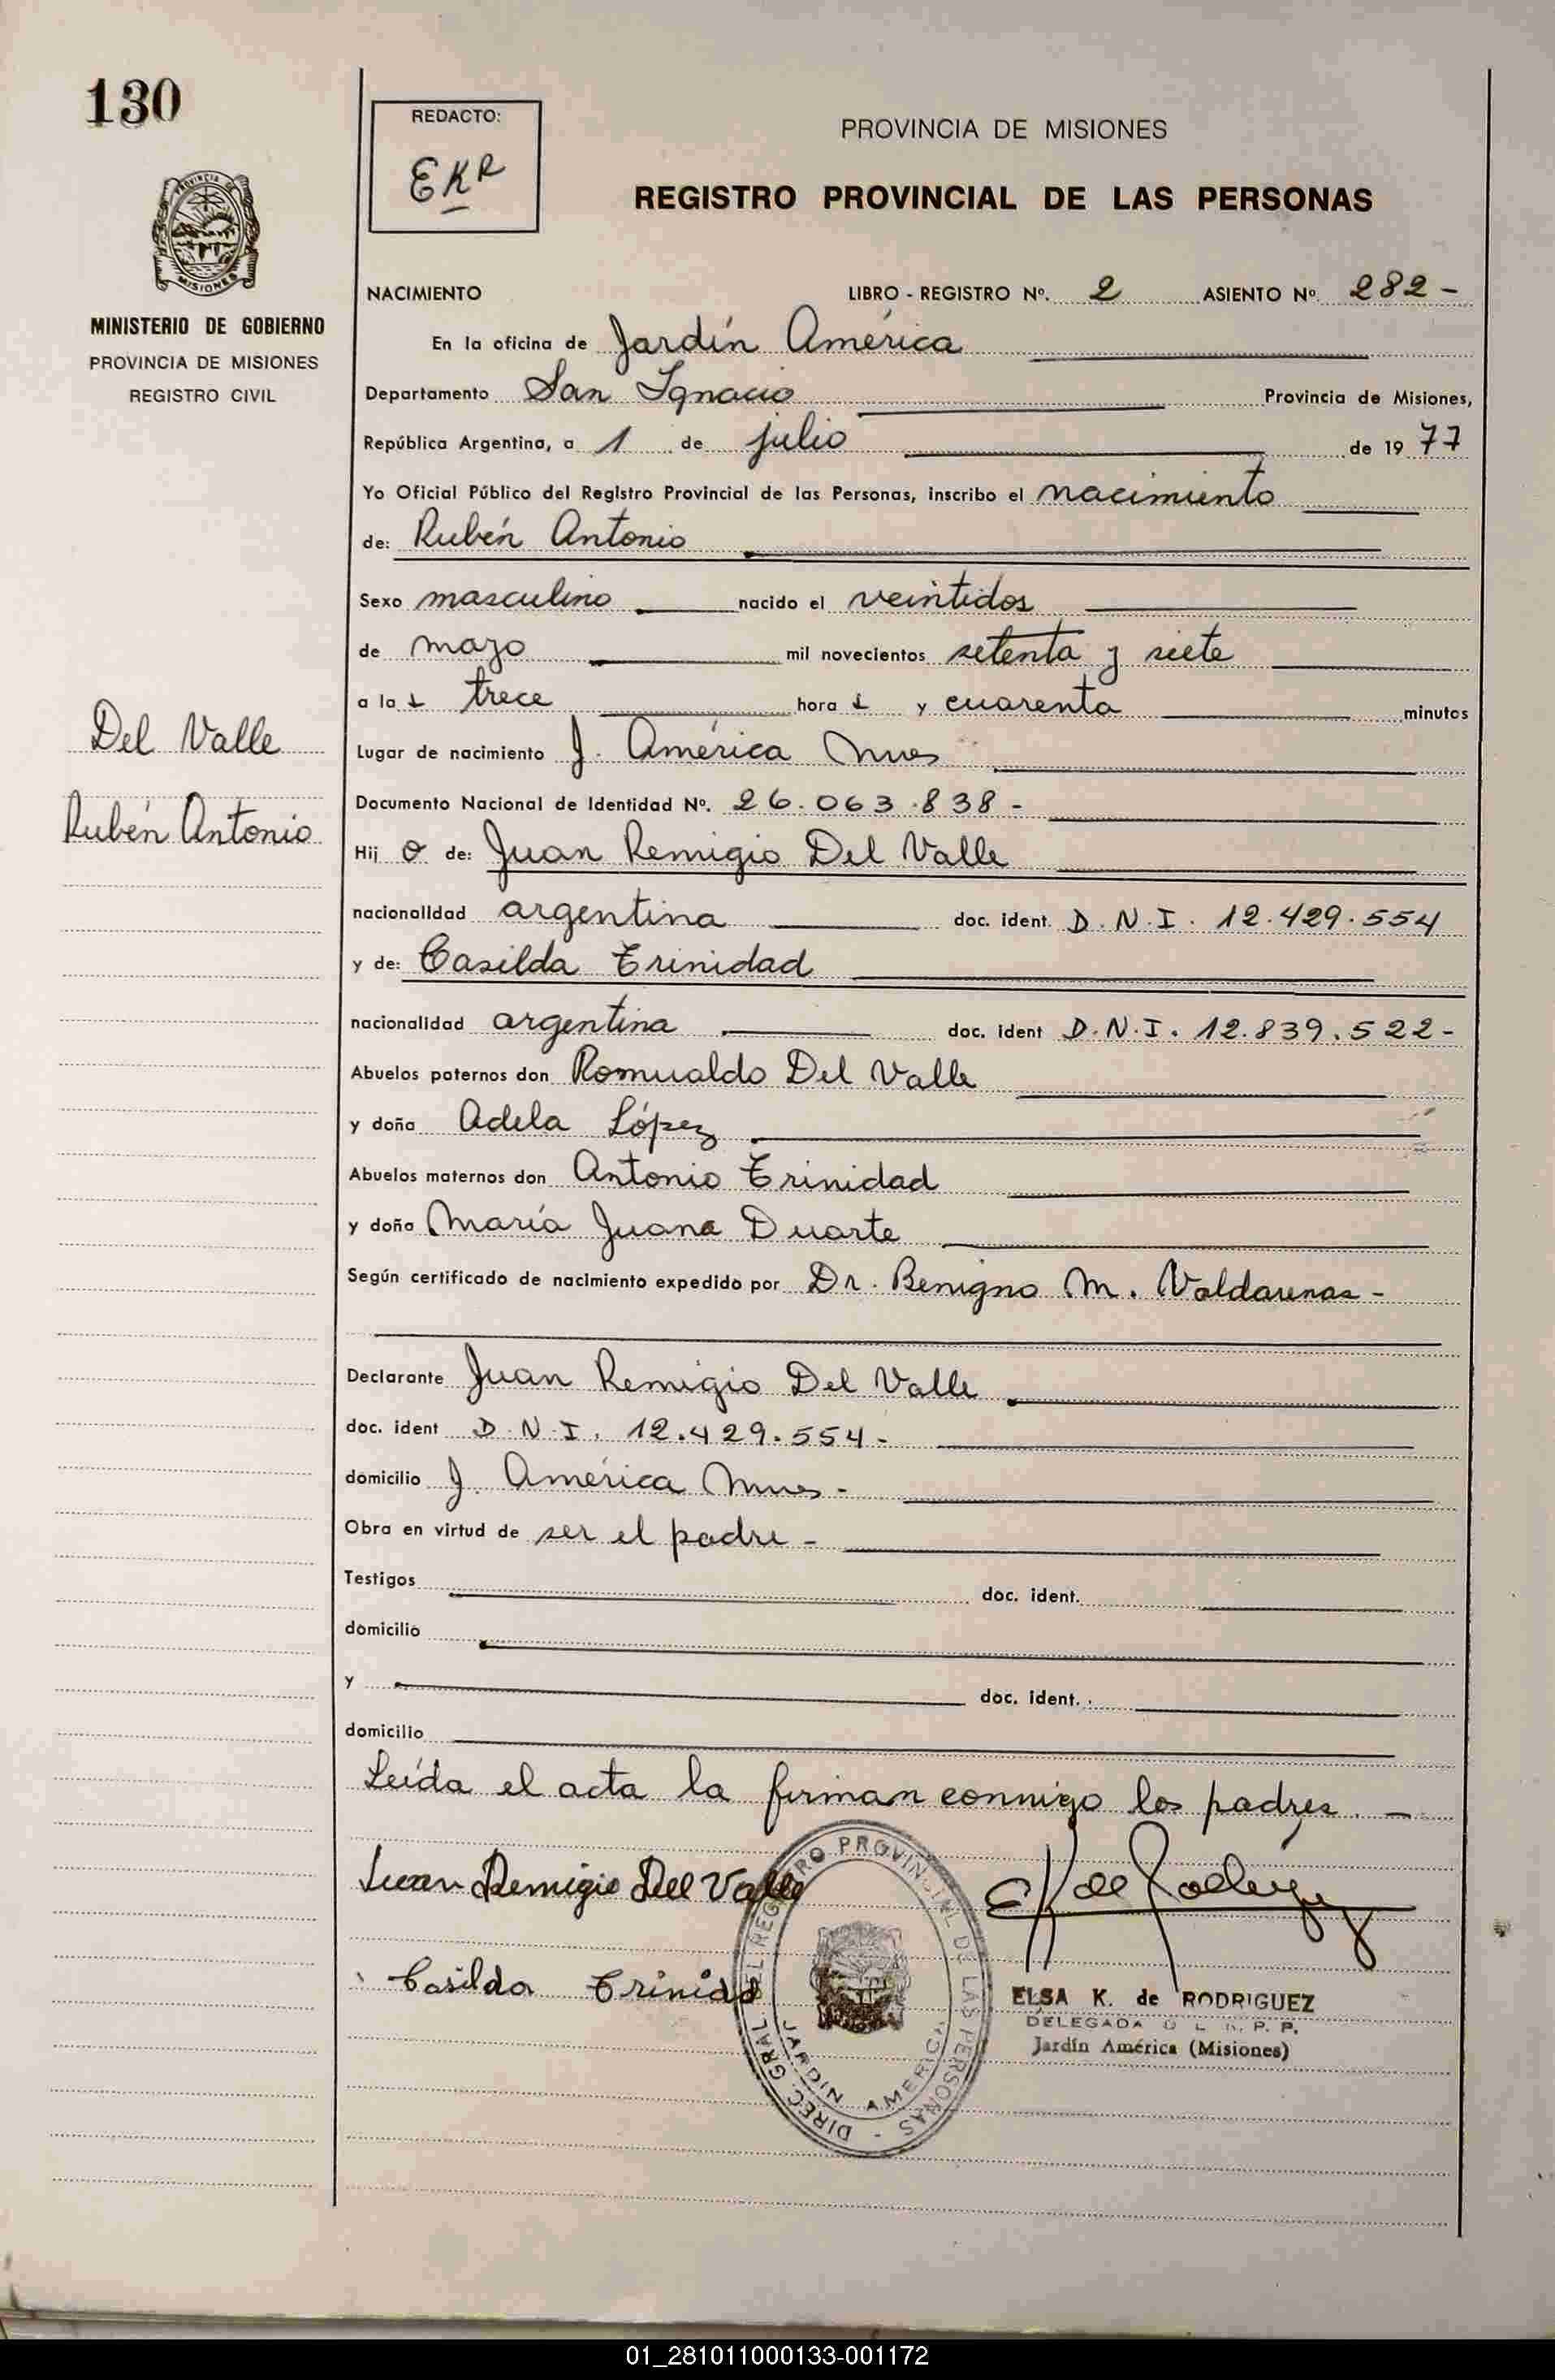 130
REDACTO:
EKR
PROVINCIA DE MISIONES
REGISTRO PROVINCIAL DE LAS PERSONAS
PROVINCIA DE
MISIONES
MINISTERIO DE GOBIERNO
PROVINCIA DE MISIONES
REGISTRO CIVIL
NACIMIENTO LIBRO - REGISTRO Nº. 2 ASIENTO Nº 282 -
En la oficina de Jardín América
Departamento San Ignacio Provincia de Misiones,
República Argentina, a 1 de julio de 19 77
Yo Oficial Público del Registro Provincial de las Personas, inscribo el nacimiento
de: Rubén Antonio
Sexo masculino nacido el veintidos
de mayo mil novecientos setenta y siete
a la s trece hora s y cuarenta minutos
Del Valle
Rubén Antonio
Lugar de nacimiento J. América Mnes
Documento Nacional de Identidad Nº. 26.063.838 -
Hij o de: Juan Remigio Del Valle
nacionalidad argentina doc. ident. D.N.I. 12.429.554
y de: Casilda Trinidad
nacionalidad argentina doc. ident D.N.I. 12.839.522 -
Abuelos paternos don Romualdo Del Valle
y doña Adela López
Abuelos maternos don Antonio Trinidad
y doña María Juana Duarte
Según certificado de nacimiento expedido por Dr. Benigno M.
Declarante Juan Remigio Del Valle
doc. ident D.N.I. 12.429.554 -
domicilio J. América Mnes -
Obra en virtud de ser el padre -
Testigos doc. ident.
domicilio
y doc. ident.
domicilio
Leída el acta la firman conmigo los padres. -
Juan Remigio Del Valle
Casilda Trinidad
DIREC. GRAL DEL REGISTRO PROVINCIAL DE LAS PERSONAS -
JARDIN AMERICA
ELSA K. de RODRIGUEZ
DELEGADA R. P. P.
Jardín América (Misiones)
01_281011000133-001172